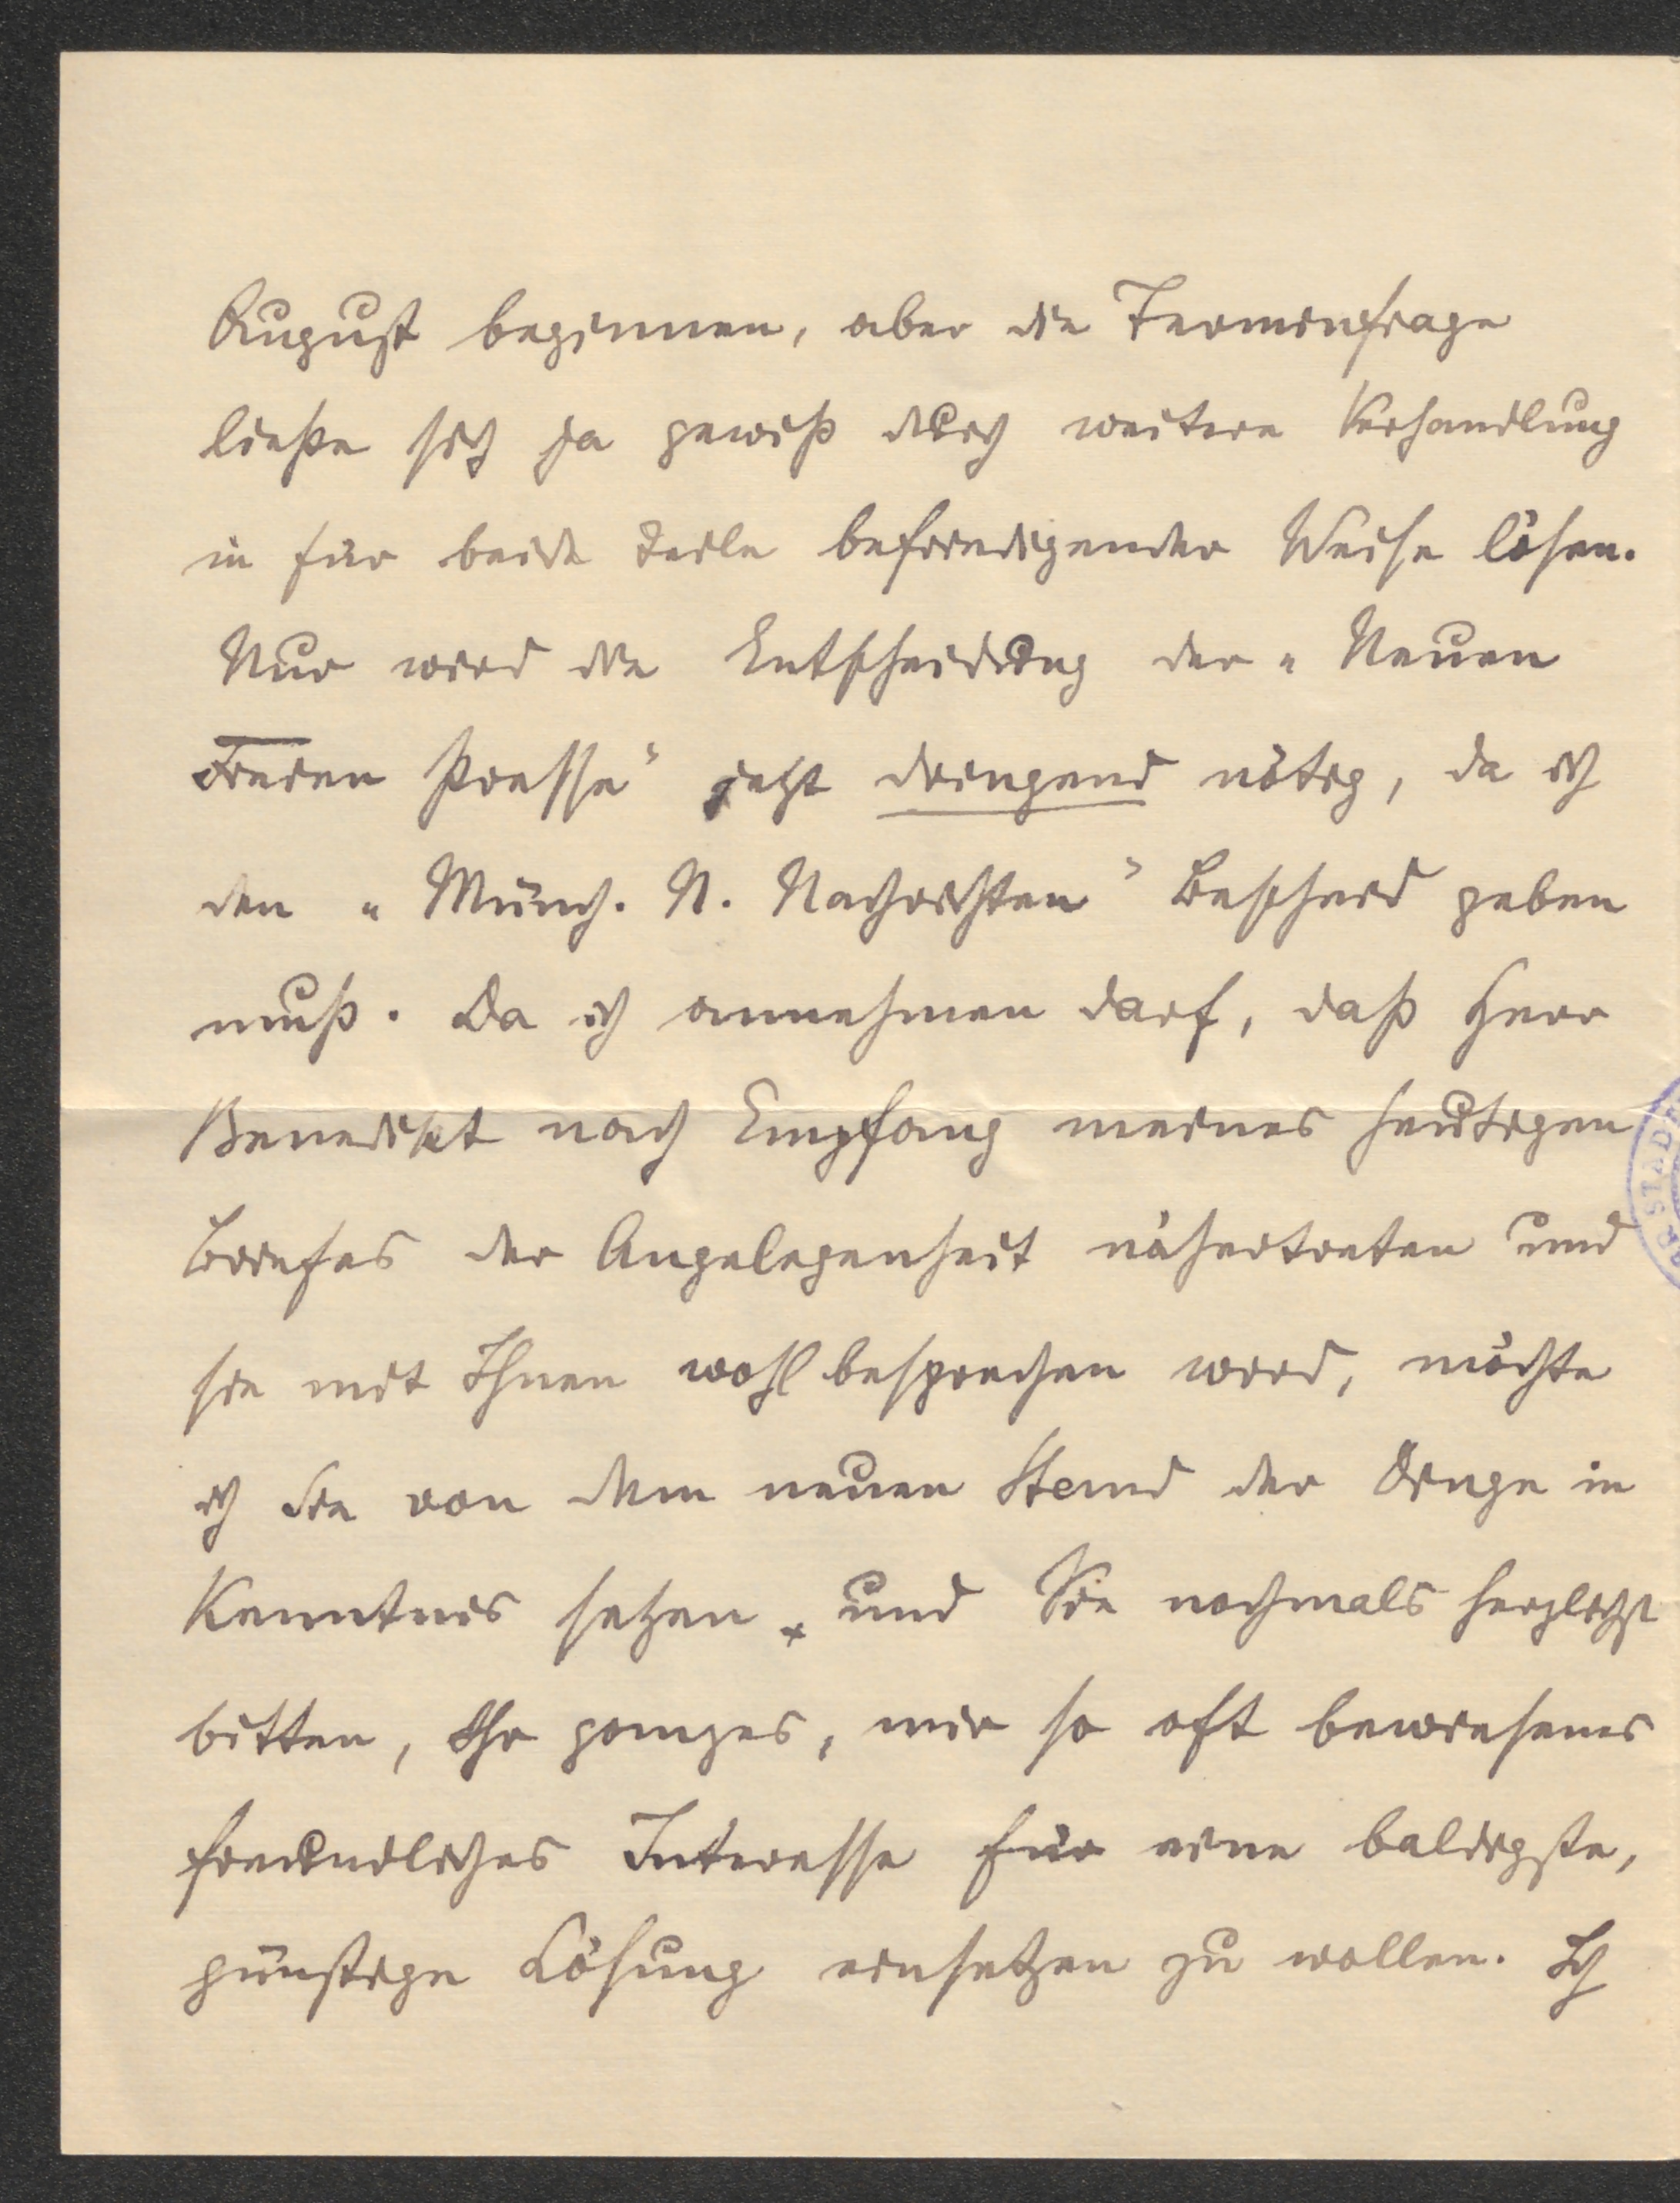 August beginnen, aber die Terminfrage
ließe sich ja gewiß durch weitere Verhandlung
in für beide Teile befriedigender Weise lösen.
Nur wird die Entscheidung der „Neuen
Freien Presse“ jetzt dringend nötig, da ich
den „Münch. N. Nachrichten“ Bescheid geben
muß. Da ich annehmen darf, daß Herr
Benedikt nach Empfang meines heutigen
Briefes der Angelegenheit nähertreten und
sie mit Ihnen wohl besprechen wird, möchte
ich Sie von dem neuen Stand der Dinge in
Kenntnis setzen und Sie nochmals herzlichst
bitten, Ihr ganzes, mir so oft bewiesenes
freundliches Interesse für eine baldigste,
günstige Lösung einsetzen zu wollen. Ich